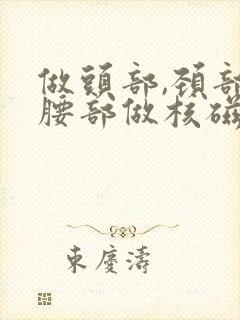 做頭部,頚部
腰部做核磁
東慶濤